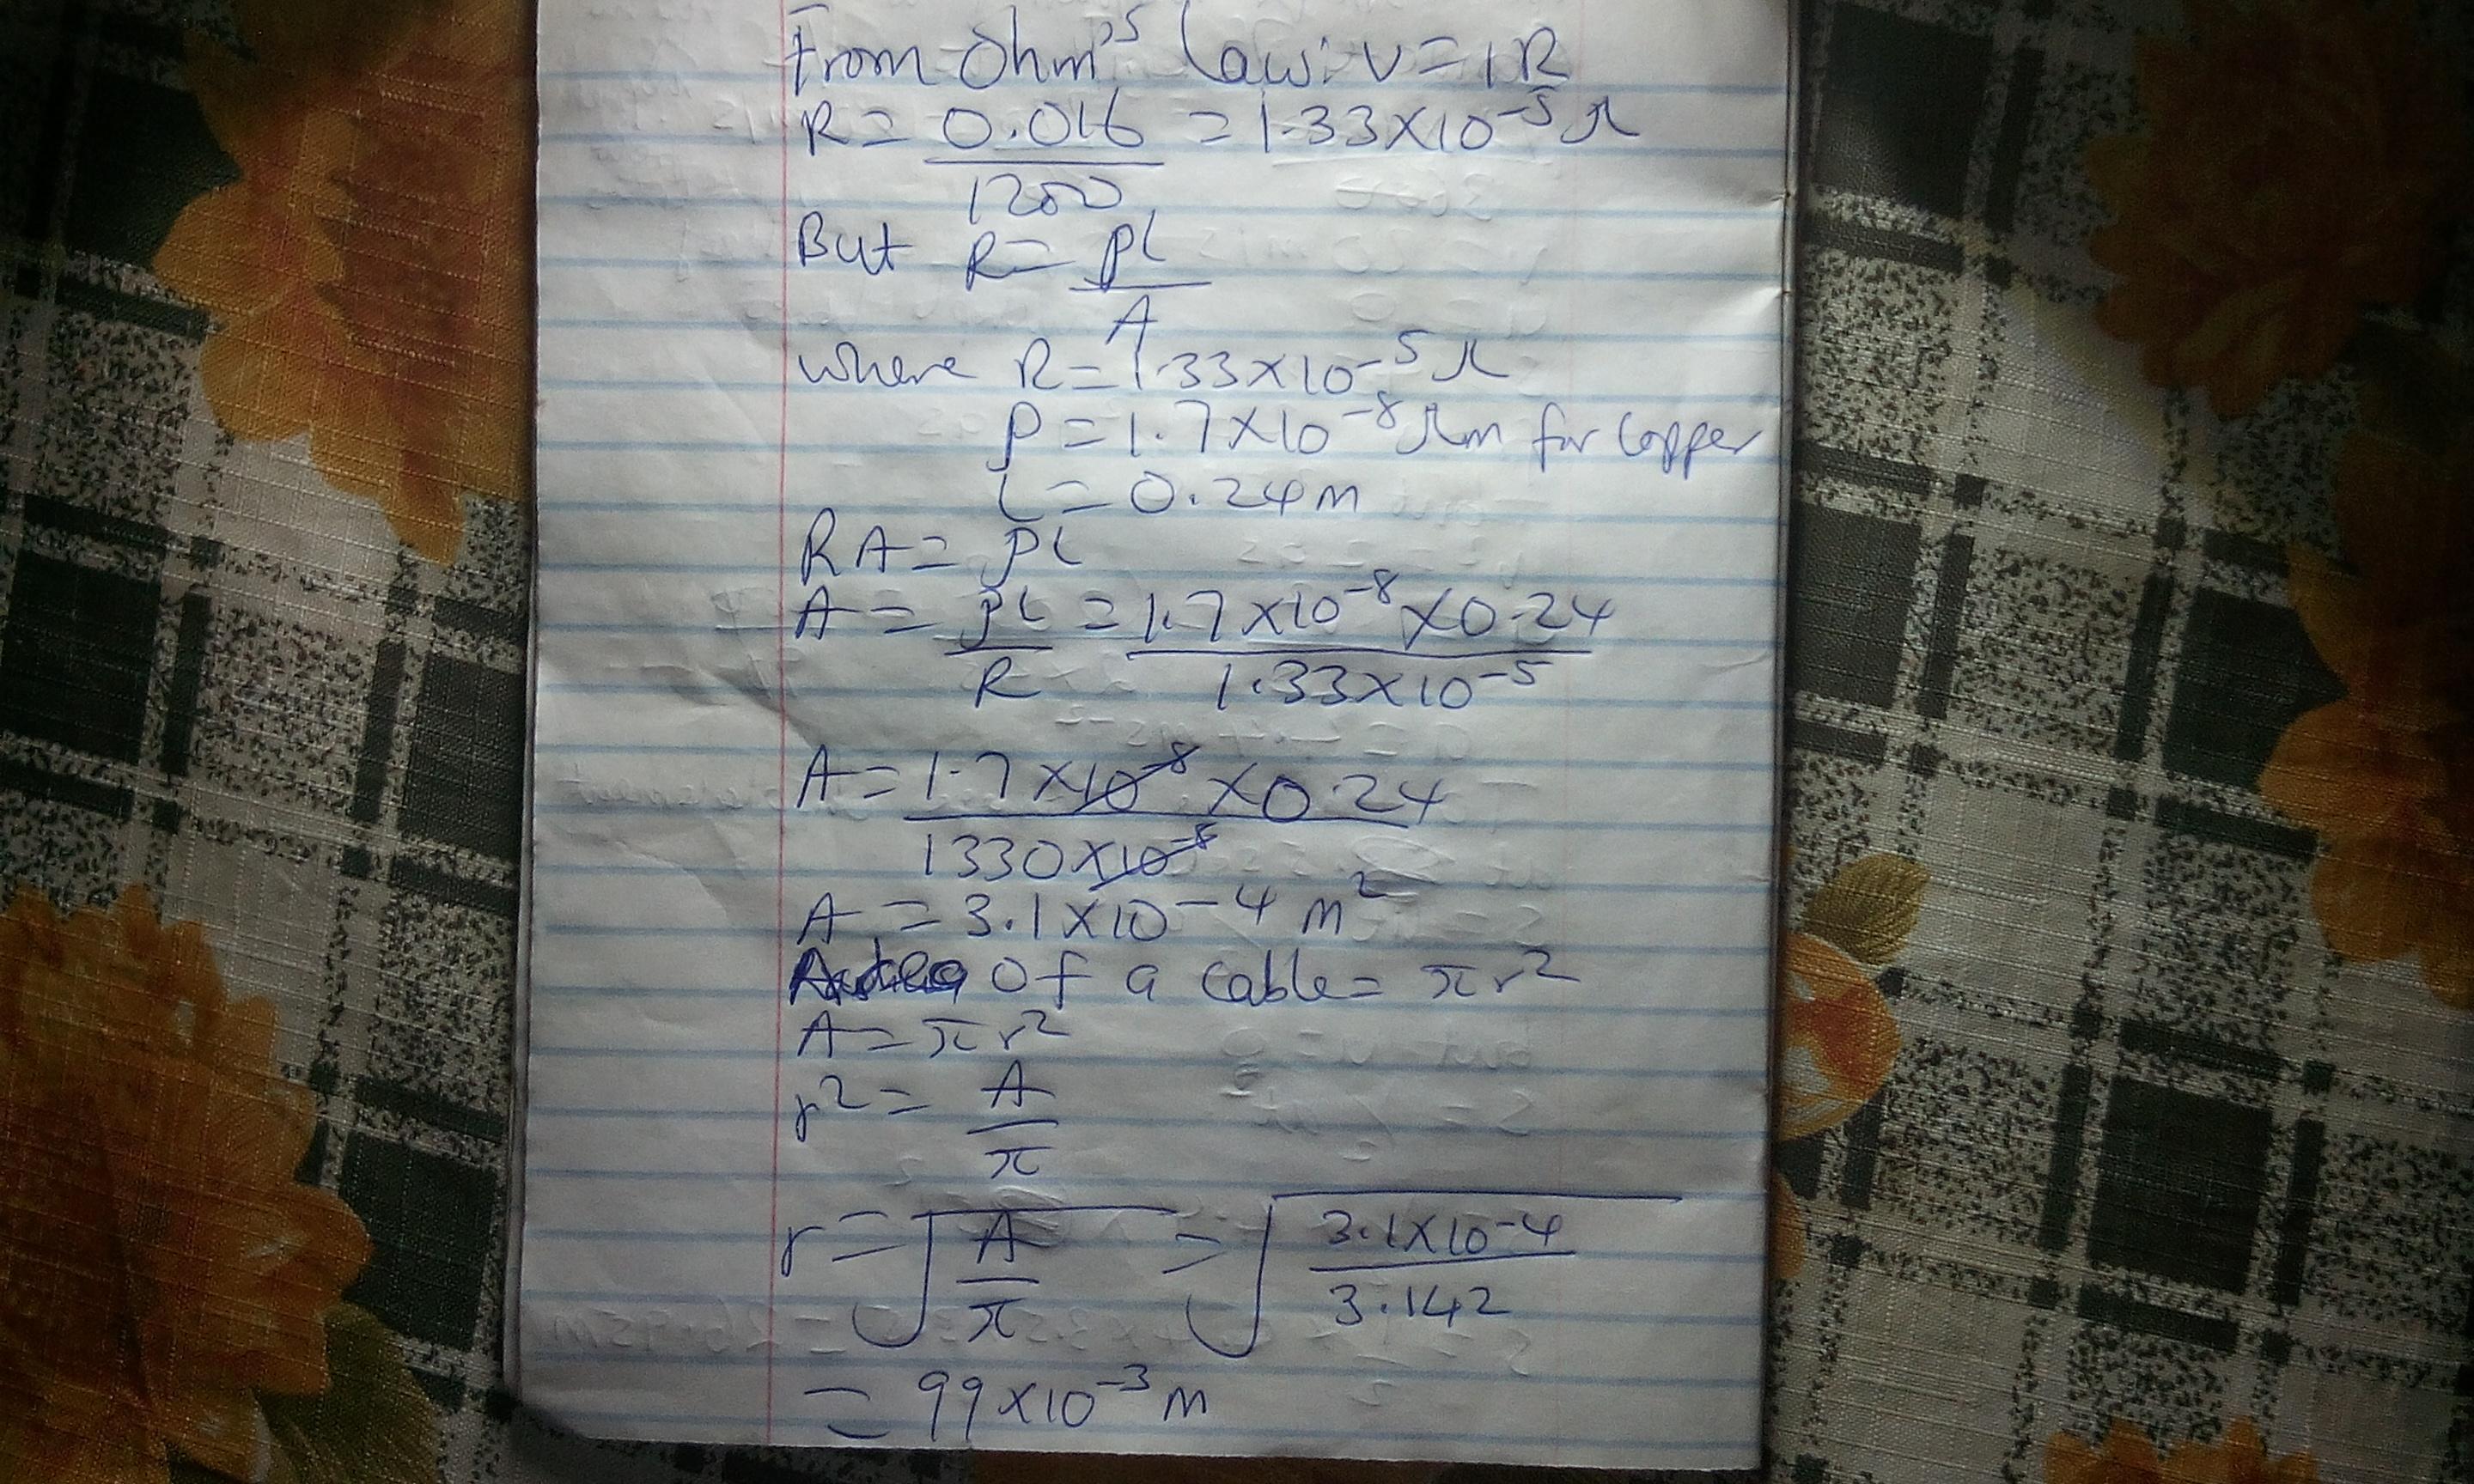 From Ohm's law: V = IR
R = 0.016 = 1.33×10⁻⁵ Ω
1200
But R = ρL
A
where R = 1.33×10⁻⁵ Ω
ρ = 1.7×10⁻⁸ Ωm for Copper
L = 0.24m
RA = ρL
A = ρL = 1.7×10⁻⁸ × 0.24
R 1.33×10⁻⁵
A = 1.7×10⁻⁸ × 0.24
1330×10⁻⁸
A = 3.1×10⁻⁴ m²
Area of a cable = πr²
A = πr²
r² = A
π
r = √A = √3.1×10⁻⁴
π 3.142
= 99×10⁻³ m